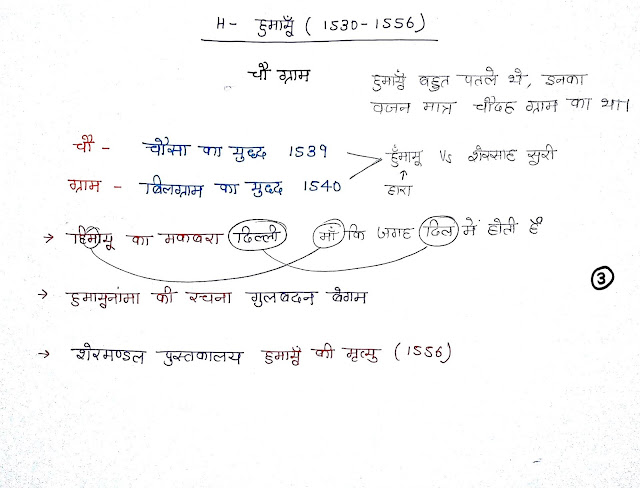 H- हुमायूँ (1530-1556)
चौ ग्राम
हुमायूँ बहुत पतले थे, इनका
वजन मात्र चौदह ग्राम का था।
चौ - चौसा का युद्ध 1539
ग्राम - बिलग्राम का युद्ध 1540
हुँमायू Vs शेरसाह सूरी
↑
हारा
→ हिमांयू का मकबरा दिल्ली माँ कि जगह दिल में होती है
→ हुमायूनांमा की रचना गुलबदन बेगम
3
→ शेरमण्डल पुस्तकालय हुमायूँ की मृत्यु (1556)